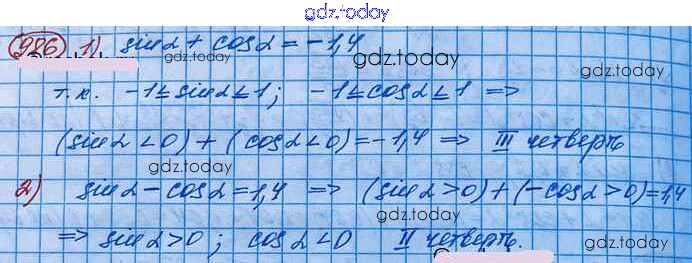 gdz.today
986 1) sinα + cosα = -1,4
gdz.today
gdz.today
т.к. -1≤sinα≤1; -1≤cosα≤1 =>
(sinα<0) + (cosα<0) = -1,4 => III четверть
gdz.today
2) sinα - cosα = 1,4 => (sinα>0) + (-cosα>0) = 1,4
gdz.today
=> sinα>0; cosα<0 II четверть.
gdz.today